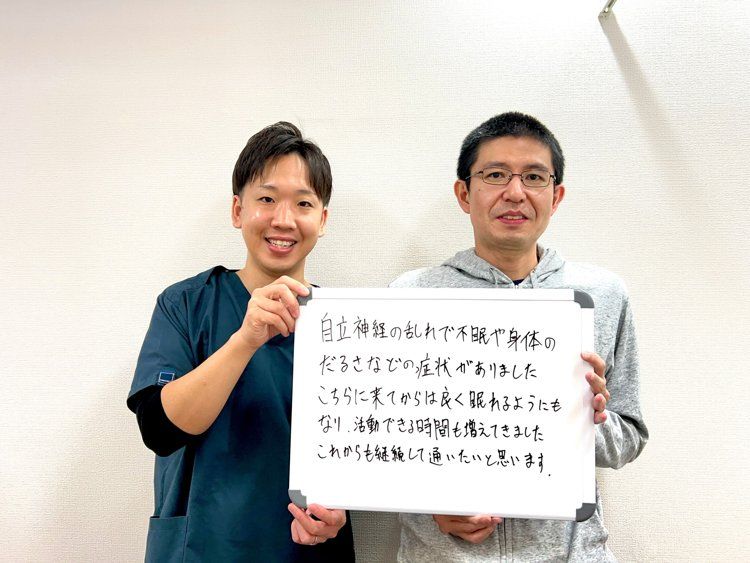 自立神経の乱れで不眠や身体の
だるさなどの症状がありました
こちらに来てからは良く眠れるようにも
なり、活動できる時間も増えてきました
これからも継続して通いたいと思います.